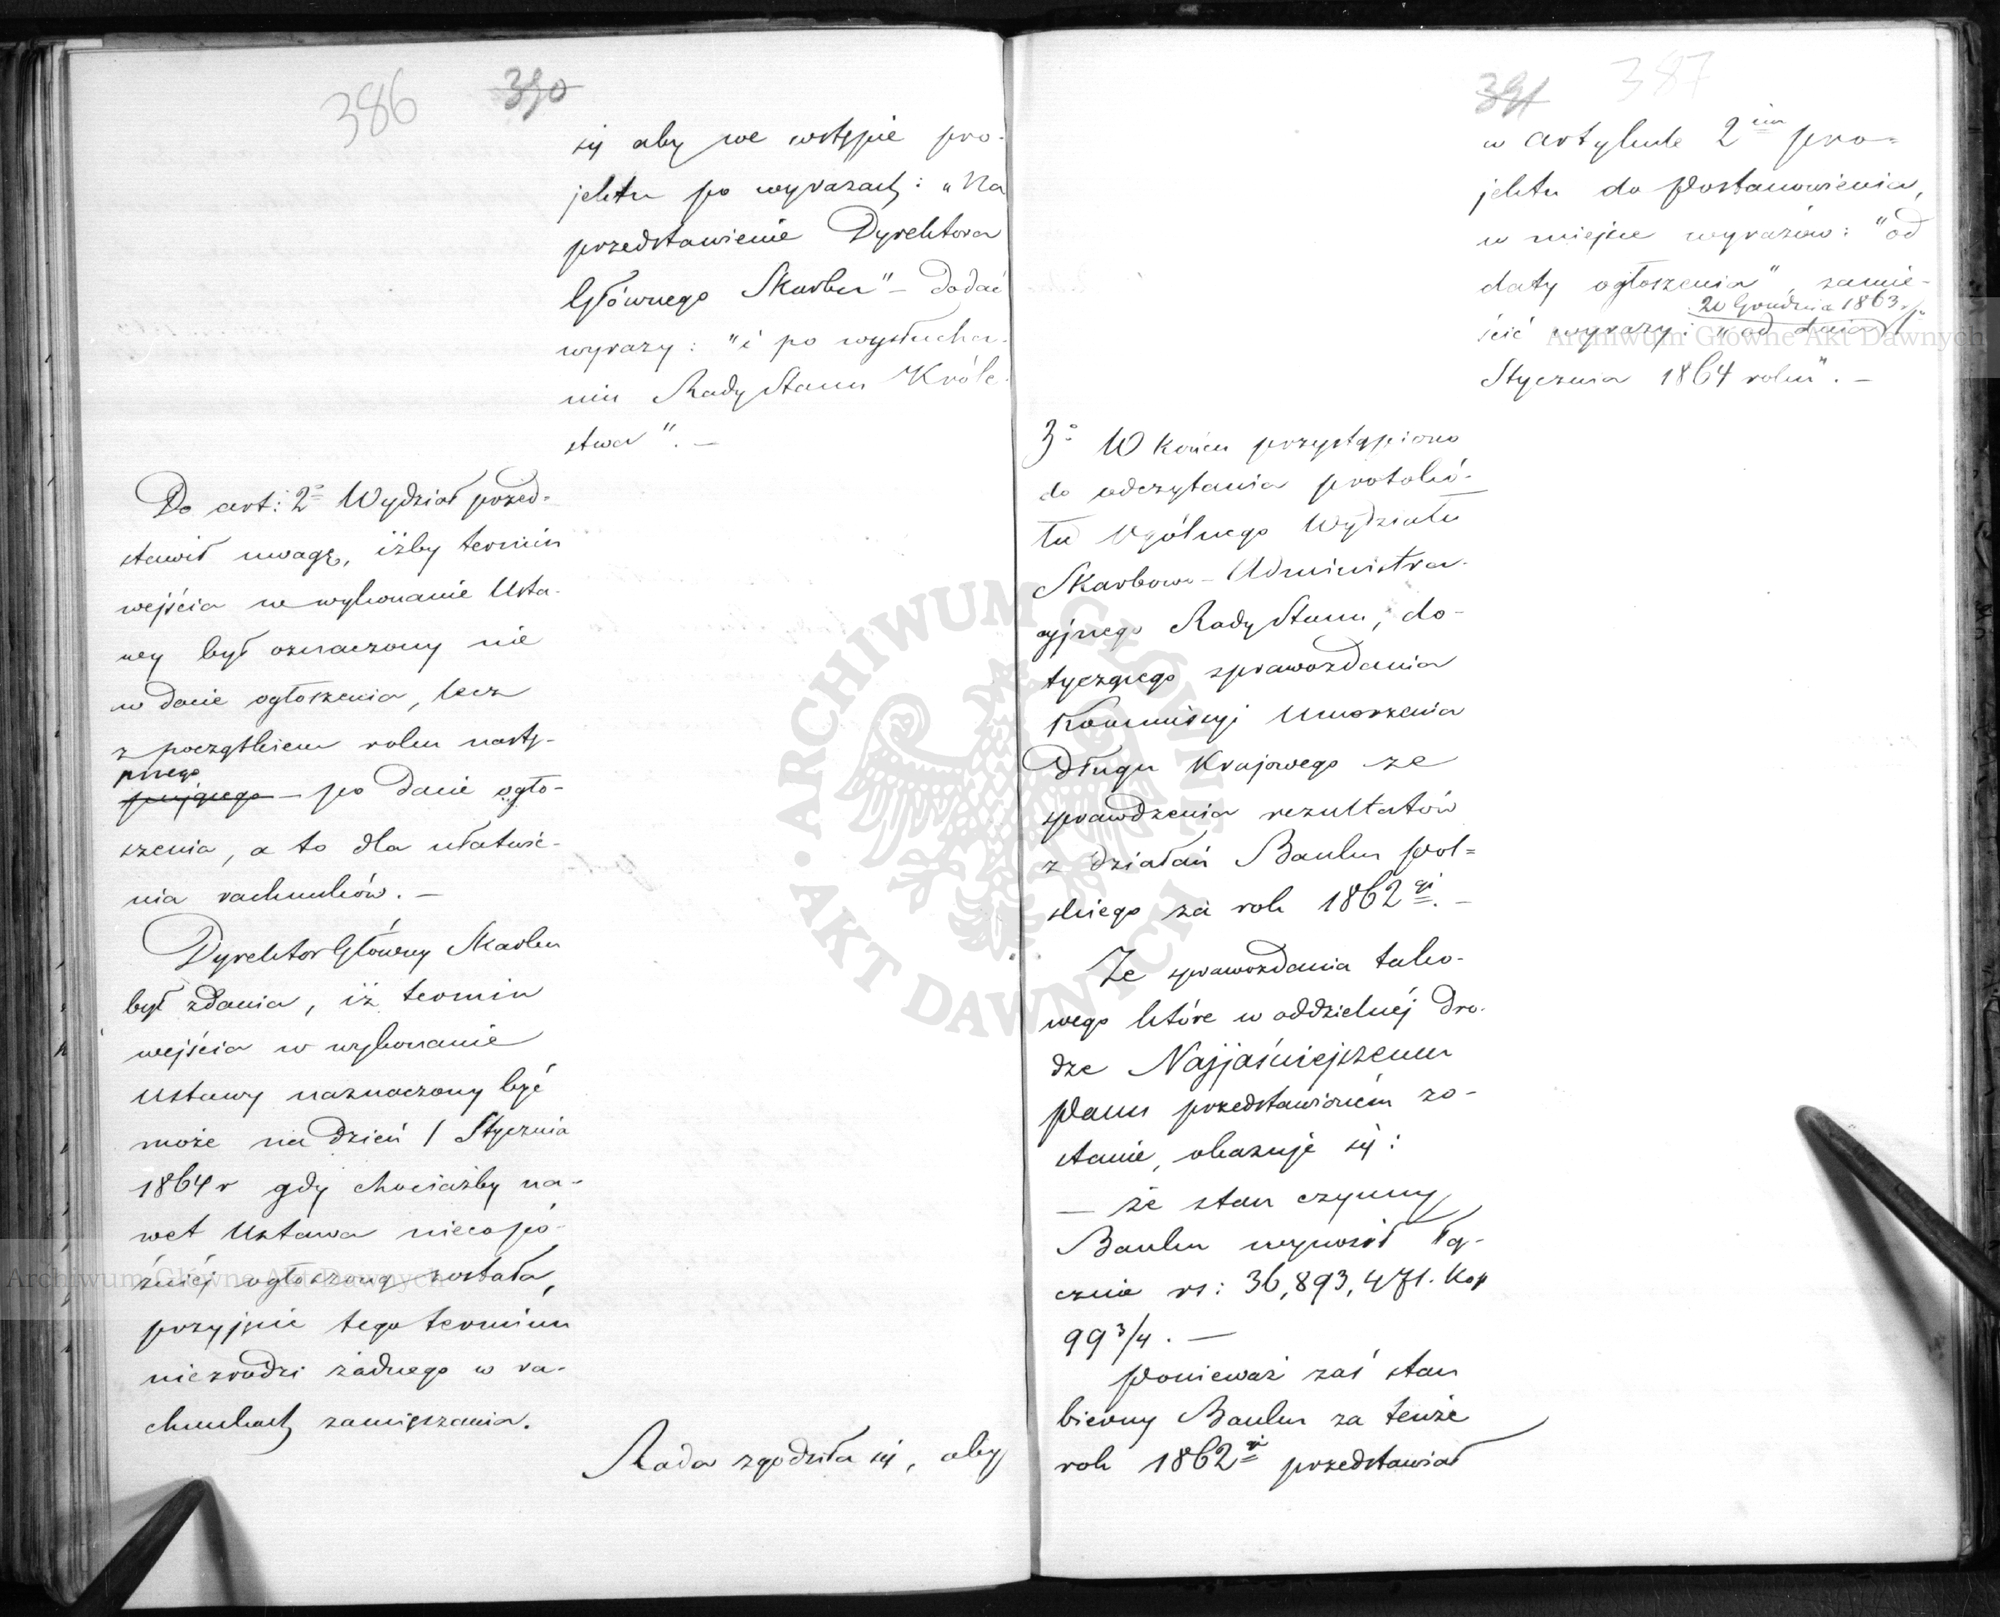 386 390
się aby we wstępie pro-
jektu po wyrazach: „Na
przedstawienie Dyrektora
Głównego Skarbu" – dodać
wyrazy: „i po wysłucha-
niu Rady Stanu Króle-
stwa". –
Do art: 2º Wydział przed-
stawił uwagę, iżby termin
wejścia w wykonanie Usta-
wy był oznaczony nie
w dacie ogłoszenia, lecz
z początkiem roku nastę-
pnego
pującego – po dacie ogło-
szenia, a to dla ułatwie-
nia rachunków. –
Dyrektor Główny Skarbu
był zdania, iż termin
wejścia w wykonanie
Ustawy naznaczony być
może na dzień 1 Stycznia
1864 r gdy chociażby na-
wet Ustawa nieco pó-
źniéj ogłoszoną została,
przyjęcie tego terminu
niezrodzi żadnego w ra-
chunkach zamięszania.
Rada zgodziła się, aby
391 387
w artykule 2im pro-
jektu do Postanowienia,
w miejsce wyrazów: „od
daty ogłoszenia", zamie-
20 Grudnia 1863 r.
ścić wyrazy: „od dnia 1
Stycznia 1864 roku". –
3º W końcu przystąpiono
do odczytania protokó-
łu Ogólnego Wydziału
Skarbowo-Administra-
cyjnego Rady Stanu, do-
tyczącego sprawozdania
Kommissyi Umorzenia
Długu Krajowego ze
sprawdzenia rezultatów
z działań Banku Pol-
skiego za rok 1862gi. –
Ze sprawozdania tako-
wego które w oddzielnéj dro-
dze Najjaśniejszemu
Panu przedstawioném zo-
stanie, okazuje się:
– że stan czynny
Banku wynosił łą-
cznie rs: 36,893,471. kop
99 3/4. –
Ponieważ zaś stan
bierny Banku za tenże
rok 1862gi przedstawiał
ARCHIWUM GŁÓWNE AKT DAWNYCH
Archiwum Główne Akt Dawnych
Archiwum Główne Akt Dawnych